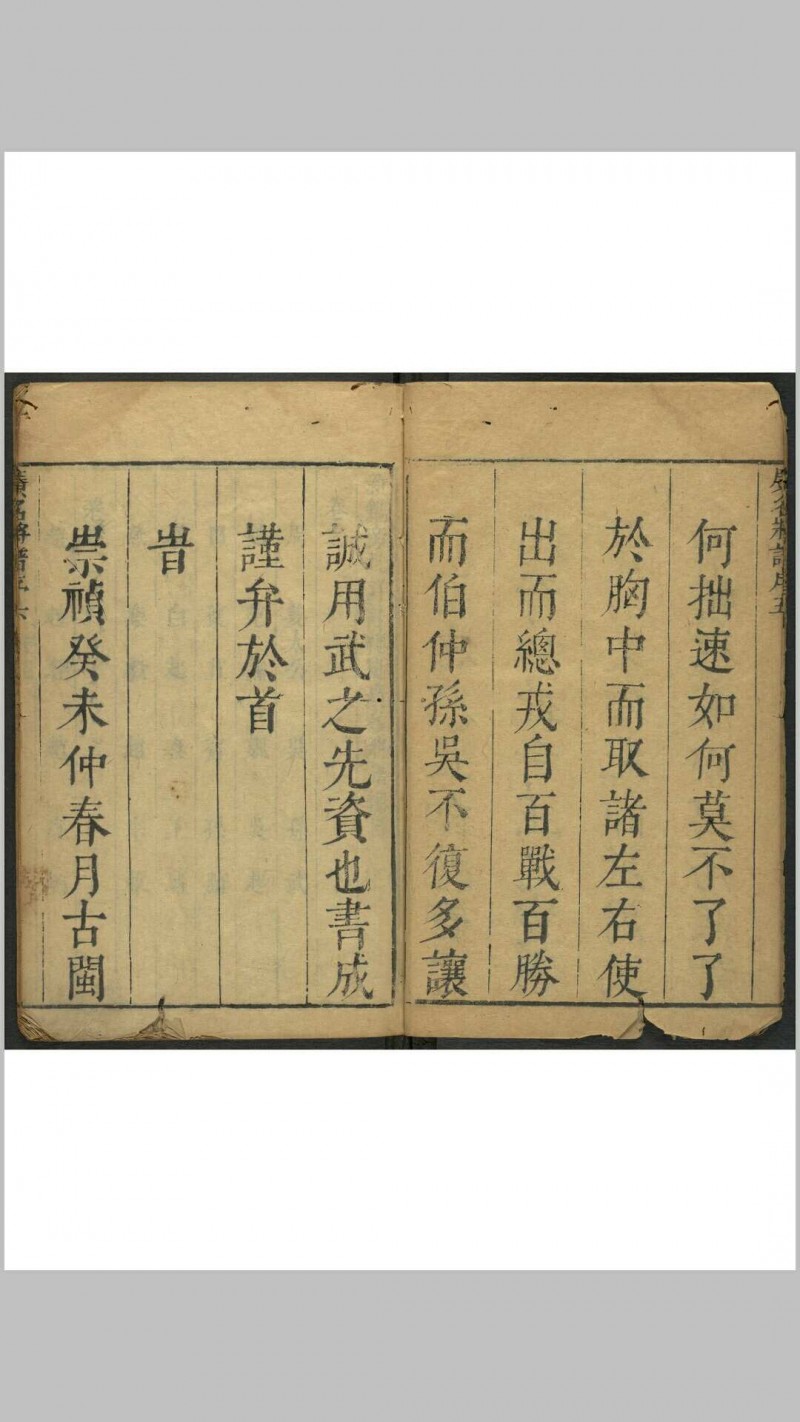 廣名將譜序五
何拙速如何莫不了了
於胸中而取諸左右使
出而總戎自百戰百勝
而伯仲孫吳不復多讓
誠用武之先資也書成
謹弁於首
旹
崇禎癸未仲春月古閩
廣名將譜序六